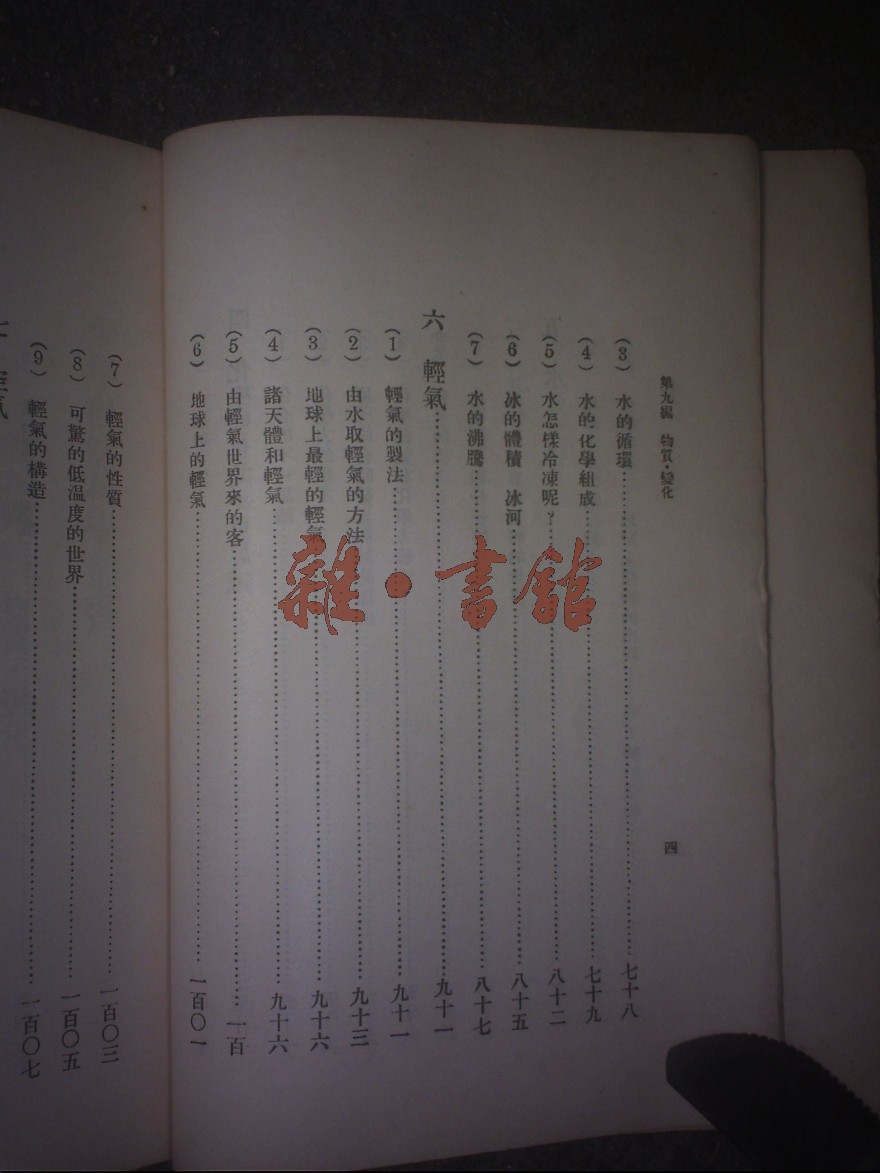 第九編 物質・變化
四
(3) 水的循環……七十八
(4) 水的化學組成……七十九
(5) 水怎樣冷凍呢?……八十二
(6) 冰的體積 冰河……八十五
(7) 水的沸騰……八十七
六 輕氣……九十一
(1) 輕氣的製法……九十一
(2) 由水取輕氣的方法……九十三
(3) 地球上最輕的輕氣……九十六
(4) 諸天體和輕氣……九十六
(5) 由輕氣世界來的客……一百
(6) 地球上的輕氣……一百〇一
(7) 輕氣的性質……一百〇三
(8) 可驚的低溫度的世界……一百〇五
(9) 輕氣的構造……一百〇七
雜・書館